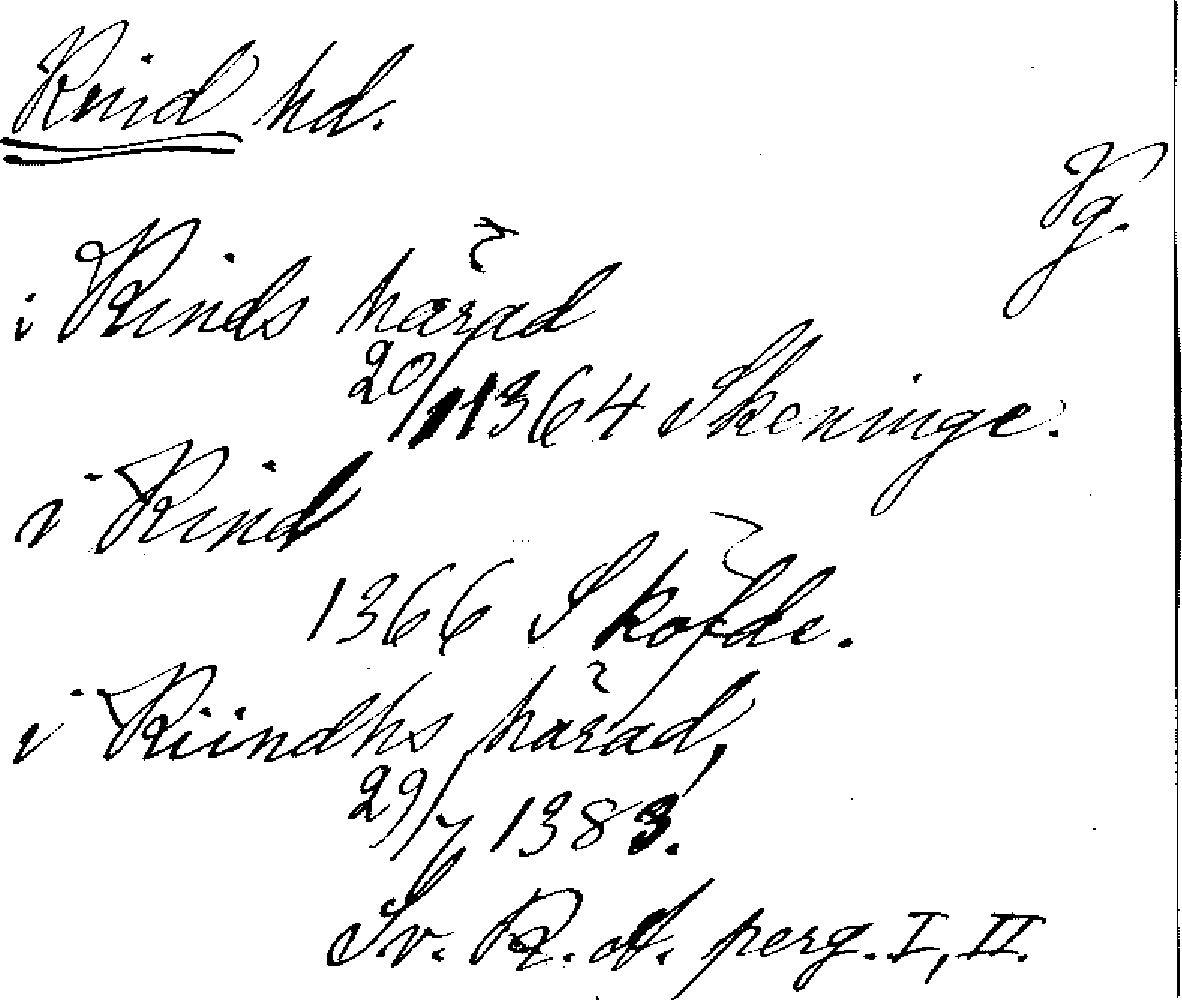 Kind hd.
Vg.
i Kinds härad
20/11 1364 Skeninge.
i Kind
1366 Sköfde.
i Kiindhs härad,
29/7 1383.
Sv. R. A. perg. I, II.